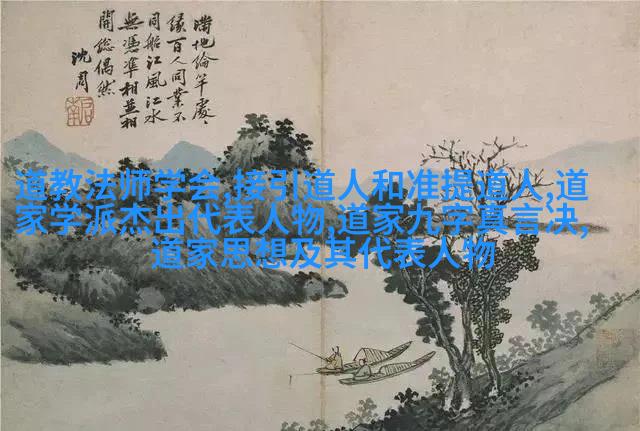 滿地綸竿處〻
緣百人同業不
同船江風江水
無憑準相並相
開總偶然
沈周
道教法师学会,接引道人和准提道人,道
家学派杰出代表人物,道家九字真言决,
道家思想及其代表人物